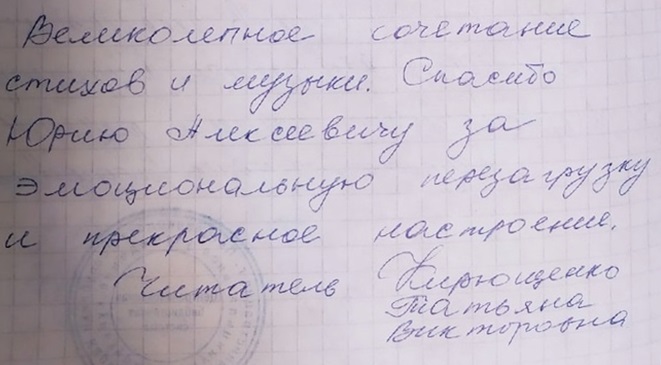 Великолепное сочетание
стихов и музыки. Спасибо
Юрию Алексеевичу за
эмоциональную перезагрузку
и прекрасное настроение.
Читатель Кирющенко
Татьяна
Викторовна